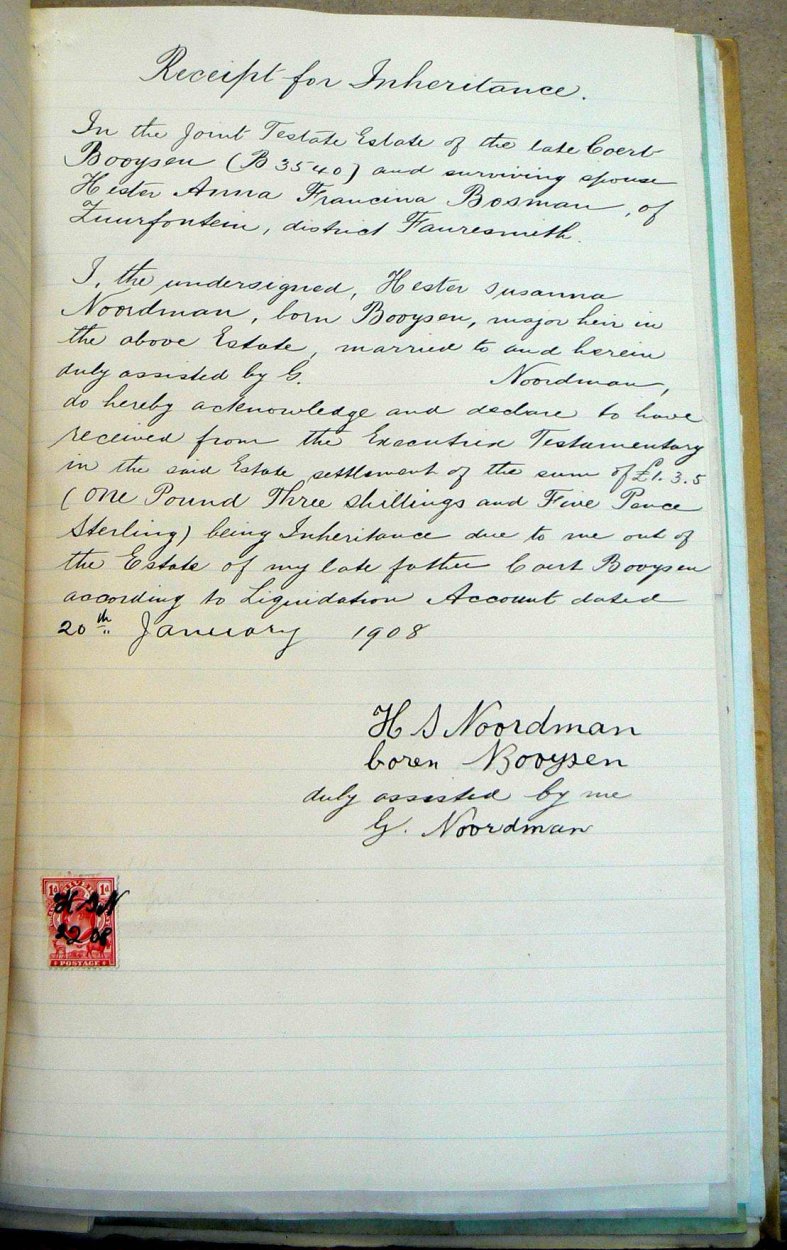 Receipt for Inheritance.
In the Joint Testate Estate of the late Coert
Booysen (B 3540) and surviving spouse
Hester Anna Francina Bosman, of
Zuurfontein, district Fauresmith.
I, the undersigned, Hester Susanna
Noordman, born Booysen, major heir in
the above Estate, married to and herein
duly assisted by G. Noordman,
do hereby acknowledge and declare to have
received from the Executrix Testamentary
in the said Estate settlement of the sum of £1.3.5
(One Pound Three Shillings and Five Pence
Sterling) being Inheritance due to me out of
the Estate of my late father Coert Booysen
according to Liquidation Account dated
20th January 1908
H S Noordman
boren Booysen
duly assisted by me
G. Noordman
1d 1d
H S N
22 08
POSTAGE